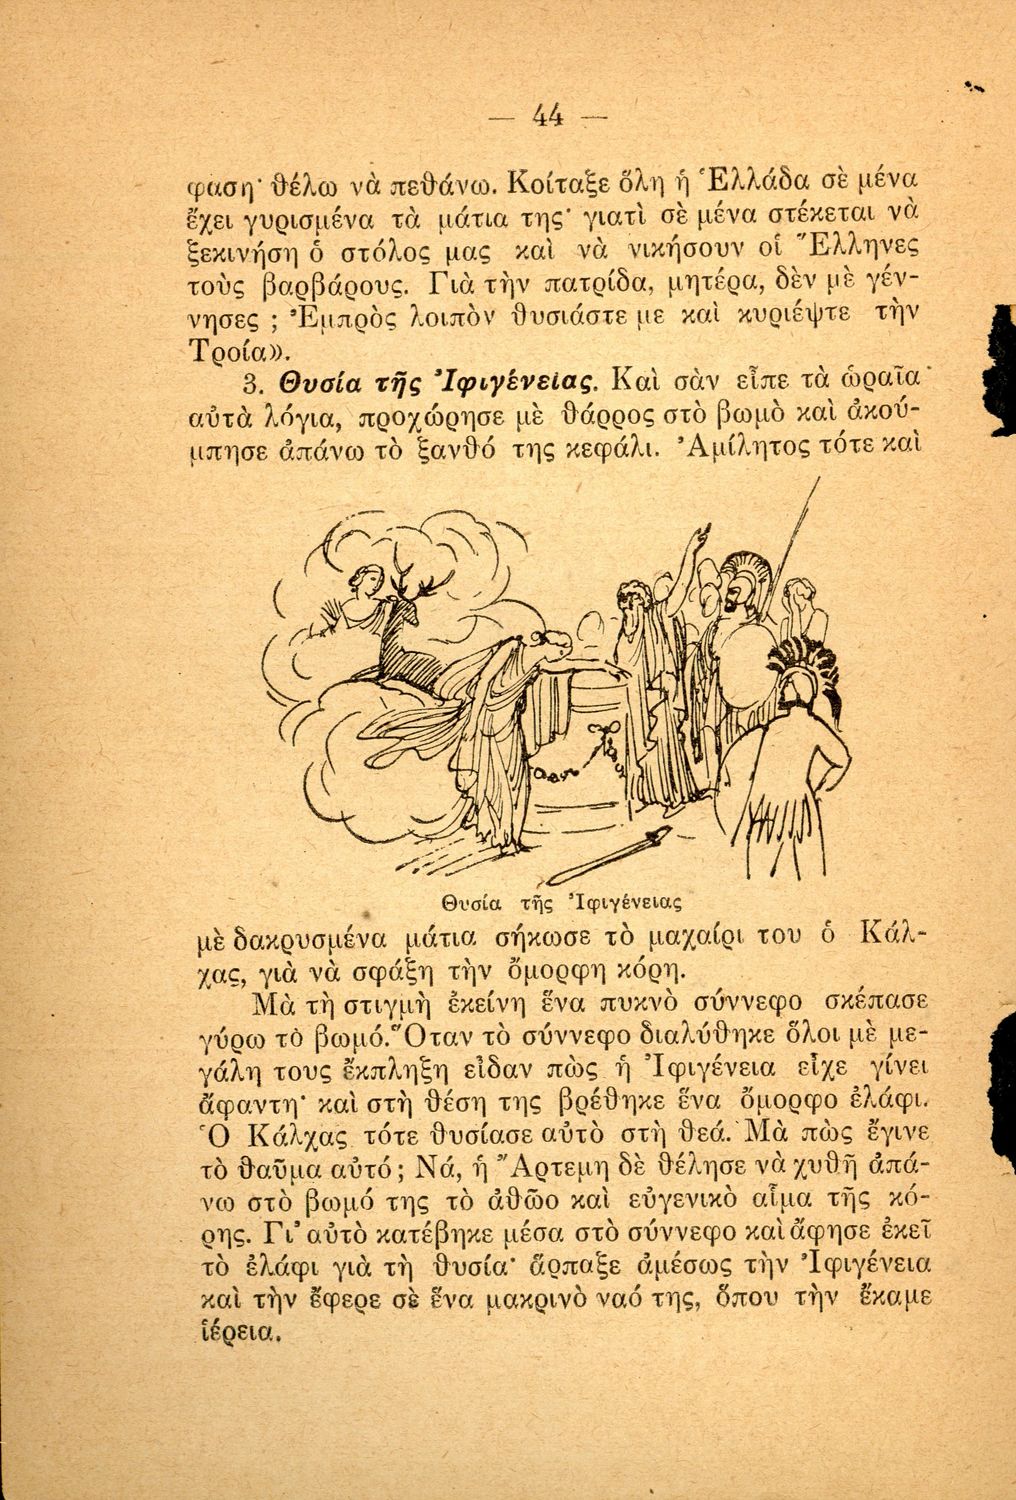 — 44 —
φαση· θέλω νὰ πεθάνω. Κοίταξε ὅλη ἡ Ἑλλάδα σὲ μένα
ἔχει γυρισμένα τὰ μάτια της· γιατὶ σὲ μένα στέκεται νὰ
ξεκινήση ὁ στόλος μας καὶ νὰ νικήσουν οἱ Ἕλληνες
τοὺς βαρβάρους. Γιὰ τὴν πατρίδα, μητέρα, δὲν μὲ γέν-
νησες ; Ἐμπρὸς λοιπὸν θυσιάστε με καὶ κυριέψτε τὴν
Τροία».
3. Θυσία τῆς Ἰφιγένειας. Καὶ σὰν εἶπε τὰ ὡραῖα
αὐτὰ λόγια, προχώρησε μὲ θάρρος στὸ βωμὸ καὶ ἀκού-
μπησε ἀπάνω τὸ ξανθό της κεφάλι. Ἀμίλητος τότε καὶ
Θυσία τῆς Ἰφιγένειας
μὲ δακρυσμένα μάτια σήκωσε τὸ μαχαίρι του ὁ Κάλ-
χας, γιὰ νὰ σφάξη τὴν ὄμορφη κόρη.
Μὰ τὴ στιγμὴ ἐκείνη ἕνα πυκνὸ σύννεφο σκέπασε
γύρω τὸ βωμό. Ὅταν τὸ σύννεφο διαλύθηκε ὅλοι μὲ με-
γάλη τους ἔκπληξη εἶδαν πὼς ἡ Ἰφιγένεια εἶχε γίνει
ἄφαντη· καὶ στὴ θέση της βρέθηκε ἕνα ὄμορφο ἐλάφι.
Ὁ Κάλχας τότε θυσίασε αὐτὸ στὴ θεά. Μὰ πὼς ἔγινε
τὸ θαῦμα αὐτό ; Νά, ἡ Ἄρτεμη δὲ θέλησε νὰ χυθῆ ἀπά-
νω στὸ βωμό της τὸ ἀθῶο καὶ εὐγενικὸ αἷμα τῆς κό-
ρης. Γι’ αὐτὸ κατέβηκε μέσα στὸ σύννεφο καὶ ἄφησε ἐκεῖ
τὸ ἐλάφι γιὰ τὴ θυσία· ἅρπαξε ἀμέσως τὴν Ἰφιγένεια
καὶ τὴν ἔφερε σὲ ἕνα μακρινὸ ναό της, ὅπου τὴν ἔκαμε
ἱέρεια.